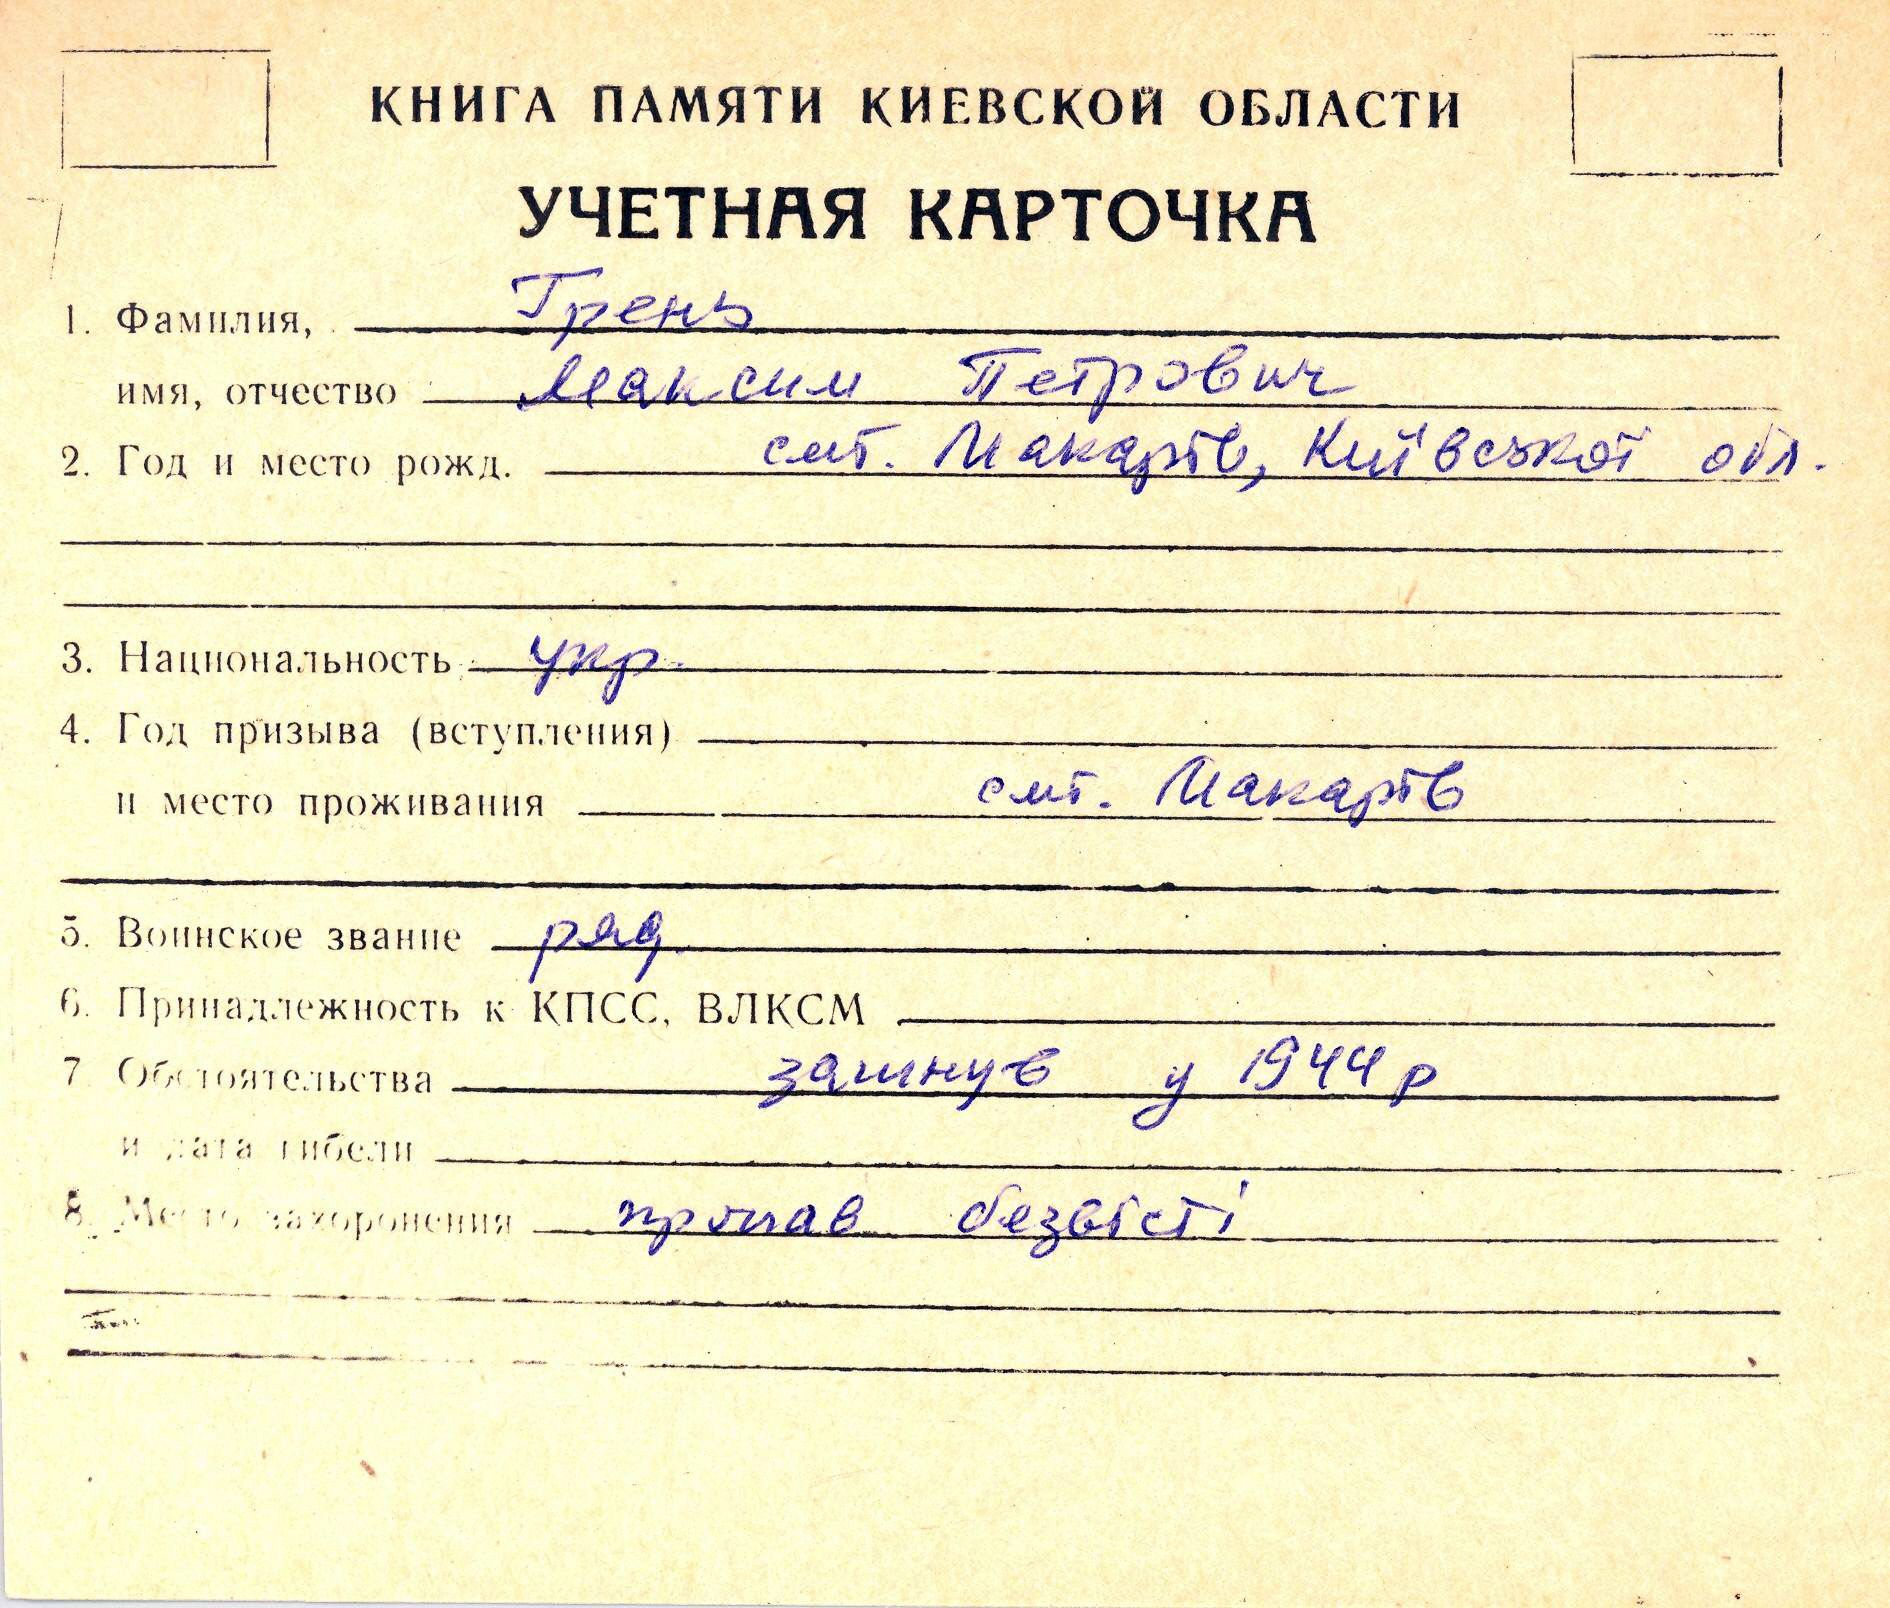 КНИГА ПАМЯТИ КИЕВСКОЙ ОБЛАСТИ
УЧЕТНАЯ КАРТОЧКА
1. Фамилия, Грень
имя, отчество Максим Петрович
2. Год и место рожд. смт. Макарів, Київської обл.
3. Национальность укр.
4. Год призыва (вступления)
и место проживания смт. Макарів
5. Воинское звание ряд.
6. Принадлежность к КПСС, ВЛКСМ
7. Обстоятельства загинув у 1944 р
и дата гибели
8. Место захоронения пропав безвісті